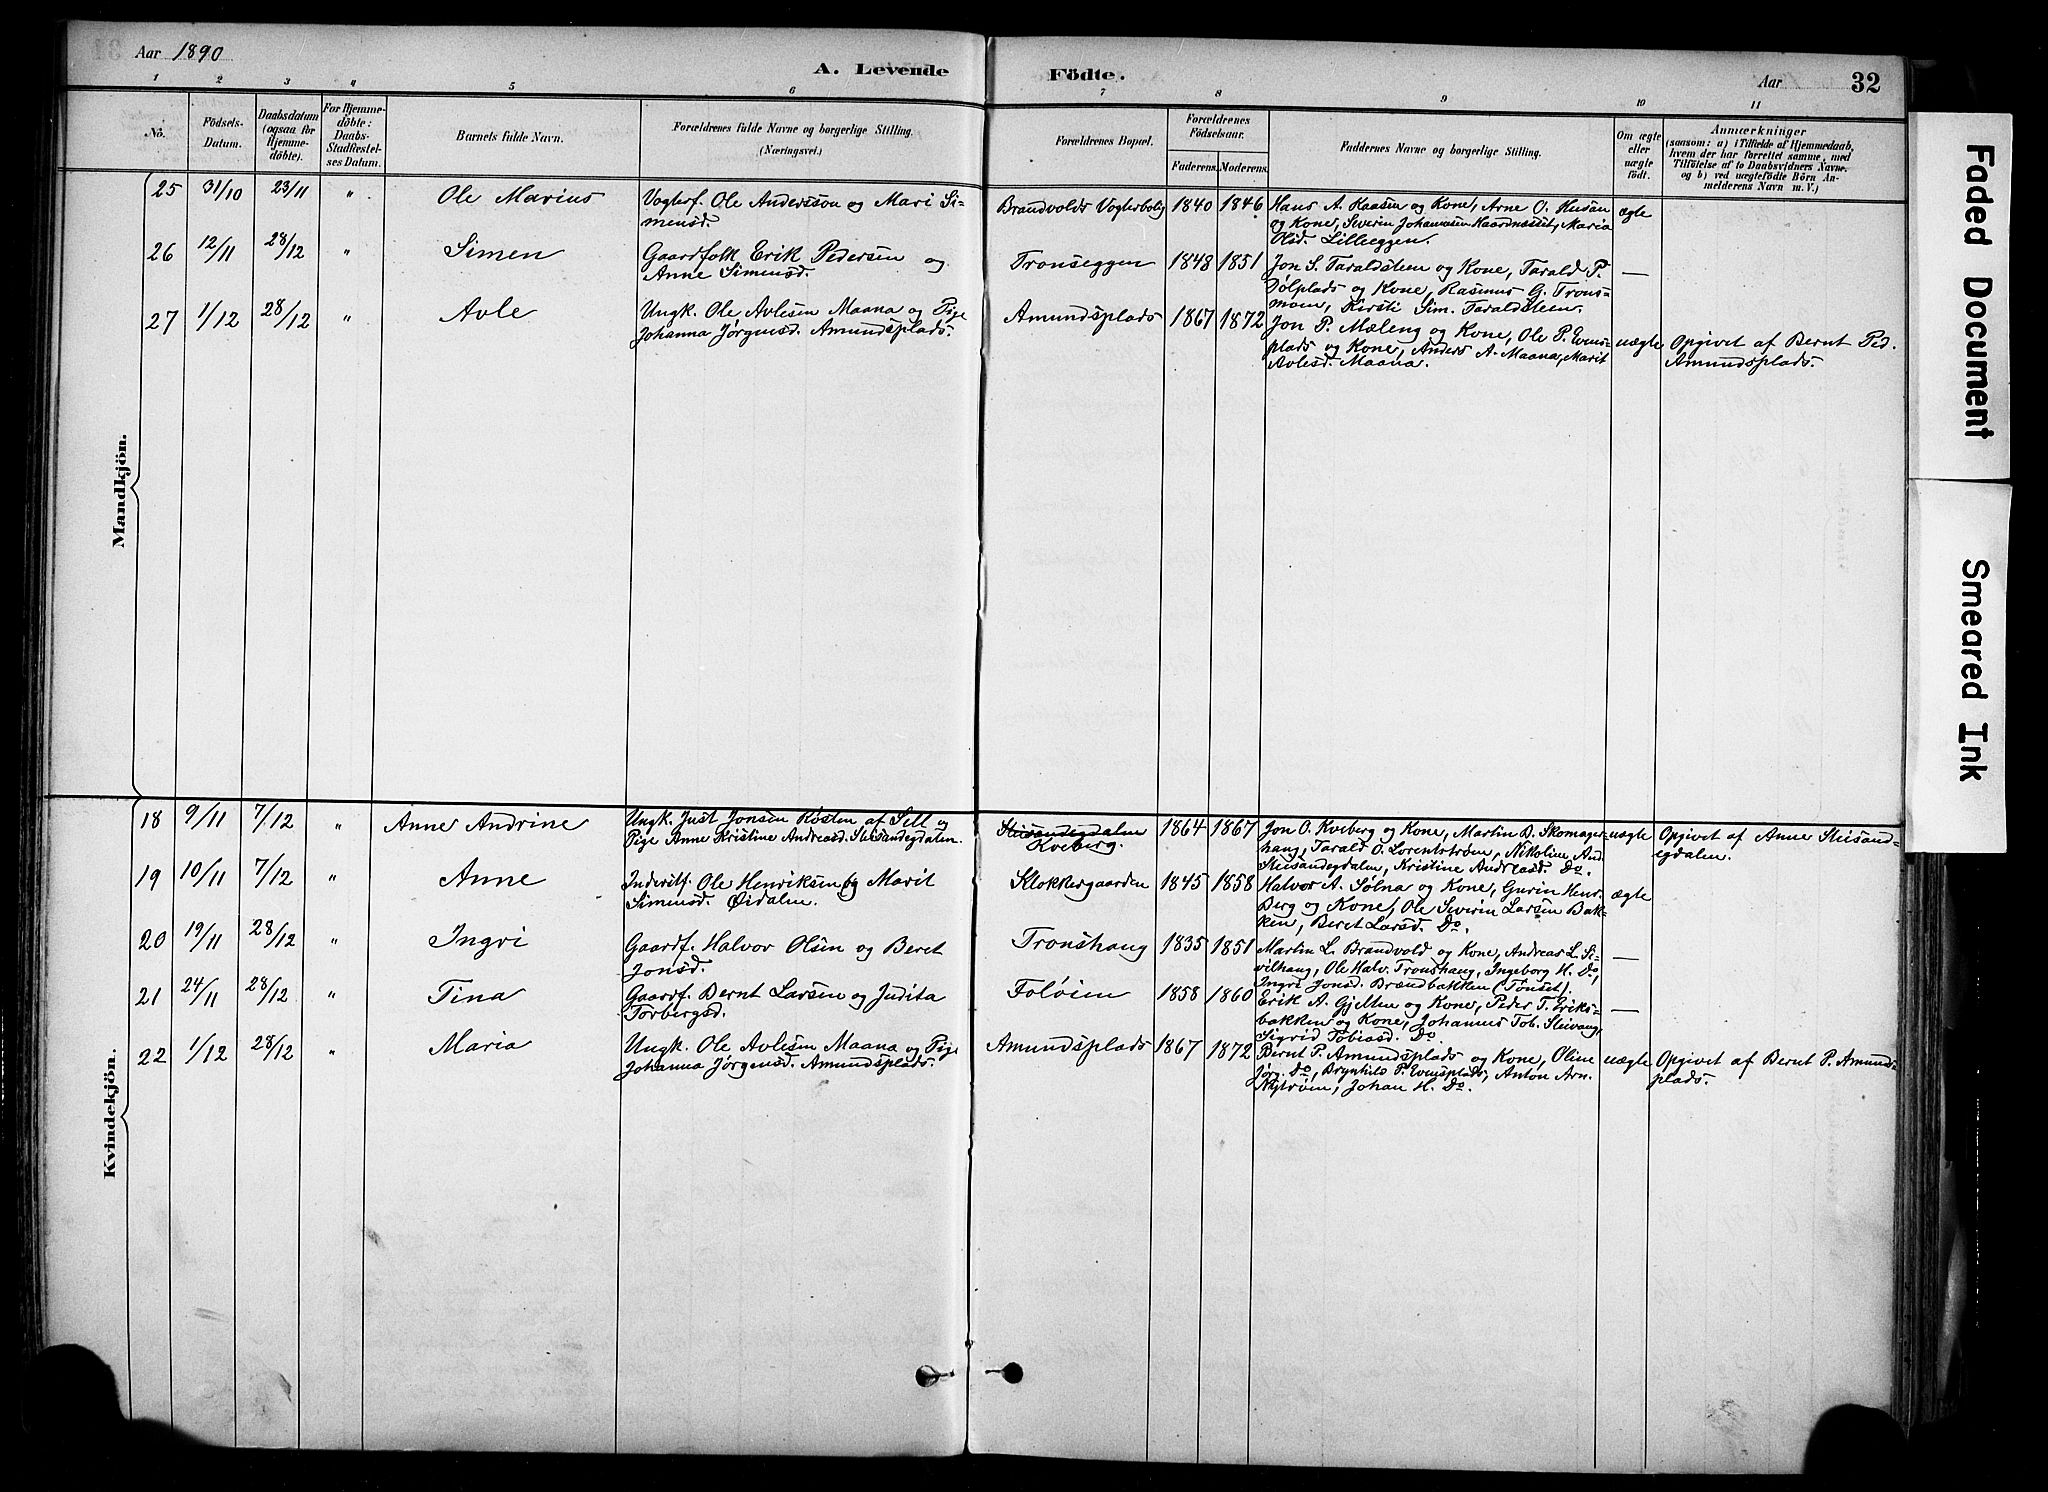 Aar 1890
A. Levende Födte.
Aar 32
1 2 3 " 5 6 7 8 9 10 11
No.
Födsels-
Datum.
Daabsdatum
(ogsaa for
Hjemme-
döbte).
For Hjemme-
döbte:
Daabs-
Stadfæstel-
ses Datum.
Barnets fulde Navn.
Forældrenes fulde Navne og borgerlige Stilling.
(Næringsvei.)
Forældrenes Bopæl.
Forældrenes
Födselsaar.
Faderens. Moderens.
Faddernes Navne og borgerlige Stilling.
Om ægte
eller
uægte
födt.
Anmærkninger
(saasom: a) i Tilfælde af Hjemmedaab,
hvem der har forrettet samme, med
Tilföielse af to Daabsvidners Navne,
og b) ved uægtefödte Börn An-
melderens Navn m. V.)
Mandkjön.
25 31/10 23/11 " Ole Marius
Vogterf. Ole Anderssøn og Mari Si-
mensd.
Brandvolds Vogterbolig 1840 1846
Hans A. Kaasen og Kone, Arne O. Husan
og Kone, Severin Johannesen Haardnæsset, Maria
Olsd. Lilleeggen.
ægte
26 12/11 28/12 " Simen
Gaardfolk Erik Pedersen og
Anne Simensd.
Tronseggen 1848 1851
Jon S. Taraldsteen og Kone, Tarald P.
Tølplads og Kone, Rasmus G. Trons-
moen, Kirsti Sim. Taraldsteen.
—
27 1/12 28/12 " Avle
Ungk. Ole Avlesen Maana og Pige
Johanna Jørgensd. Amundsplads.
Amundsplads 1867 1872
Jon P. Mæleng og Kone, Ole P. Evens-
plads og Kone, Anders A. Maana, Marit
Avlesd. Maana.
uægte
Opgivet af Bernt Ped.
Amundsplads.
Kvindekjön.
18 9/11 7/12 " Anne Andrine
Ungk. Just Jonsen Røsten af Sell og
Pige Anne Kristine Andreasd. Steisandegdalen.
Steisandegdalen
Kveberg.
1864 1867
Jon O. Kveberg og Kone, Martin D. Skomager-
haug, Tarald O. Lorentstrøen, Nikoline And.
Steisandegdalen, Kristine Andreasd. Do.
uægte
Opgivet af Anne Steisand-
egdalen.
19 10/11 7/12 " Anne
Inderstf. Ole Henriksen og Marit
Simensd. Øidalen.
Klokkergaarden 1845 1858
Halvor A. Sølna og Kone, Gurin Henr.
Berg og Kone, Ole Severin Larsen Bak-
ken, Beret Larsd. Do.
ægte
20 19/11 28/12 " Ingri
Gaardf. Halvor Olsen og Beret
Jonsd.
Tronshaug 1835 1851
Martin L. Brandvold og Kone, Andreas L. Si-
vilhaug, Ole Halv. Tronshaug, Ingeborg H. Do,
Ingri Jonsd. Brændbakken (Tønset).
—
21 24/11 28/12 " Tina
Gaardf. Bernt Larsen og Judita
Torbergsd.
Foløien 1858 1860
Erik A. Gjelten og Kone, Peder T. Eriks-
bakken og Kone, Johannes Tob. Steivang,
Sigrid Tobiasd. Do.
—
22 1/12 28/12 " Maria
Ungk. Ole Avlesen Maana og Pige
Johanna Jørgensd. Amundsplads.
Amundsplads 1867 1872
Bernt P. Amundsplads og Kone, Oline
Jørg. Do, Brynhild P. Evensplads, Anton Arn.
Nystrøen, Johan H. Do.
uægte
Opgivet af Bernt P. Amunds-
plads.
Faded Document
Smeared Ink